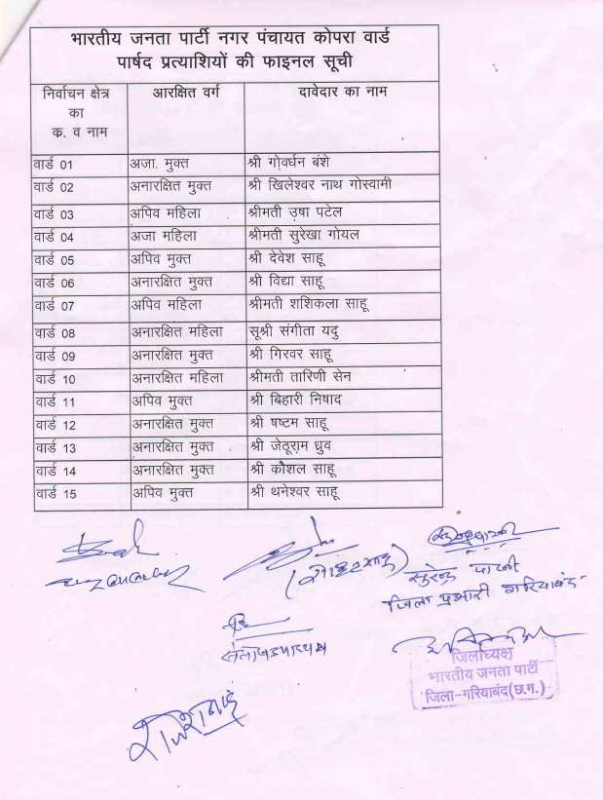 भारतीय जनता पार्टी नगर पंचायत कोपरा वार्ड
पार्षद प्रत्याशियों की फाइनल सूची
निर्वाचन क्षेत्र का क. व नाम आरक्षित वर्ग दावेदार का नाम
वार्ड 01 अजा. मुक्त श्री गोवर्धन बंशे
वार्ड 02 अनारक्षित मुक्त श्री खिलेश्वर नाथ गोस्वामी
वार्ड 03 अपिव महिला श्रीमती उषा पटेल
वार्ड 04 अजा महिला श्रीमती सुरेखा गोयल
वार्ड 05 अपिव मुक्त श्री देवेश साहू
वार्ड 06 अनारक्षित मुक्त श्री विद्या साहू
वार्ड 07 अपिव महिला श्रीमती शशिकला साहू
वार्ड 08 अनारक्षित महिला सूश्री संगीता यदु
वार्ड 09 अनारक्षित मुक्त श्री गिरवर साहू
वार्ड 10 अनारक्षित महिला श्रीमती तारिणी सेन
वार्ड 11 अपिव मुक्त श्री बिहारी निषाद
वार्ड 12 अनारक्षित मुक्त श्री षष्टम साहू
वार्ड 13 अनारक्षित मुक्त श्री जेठूराम ध्रुव
वार्ड 14 अनारक्षित मुक्त श्री कौशल साहू
वार्ड 15 अपिव मुक्त श्री थनेश्वर साहू
जिला प्रभारी गरियाबंद
जिलाध्यक्ष
भारतीय जनता पार्टी
जिला-गरियाबंद(छ.ग.)